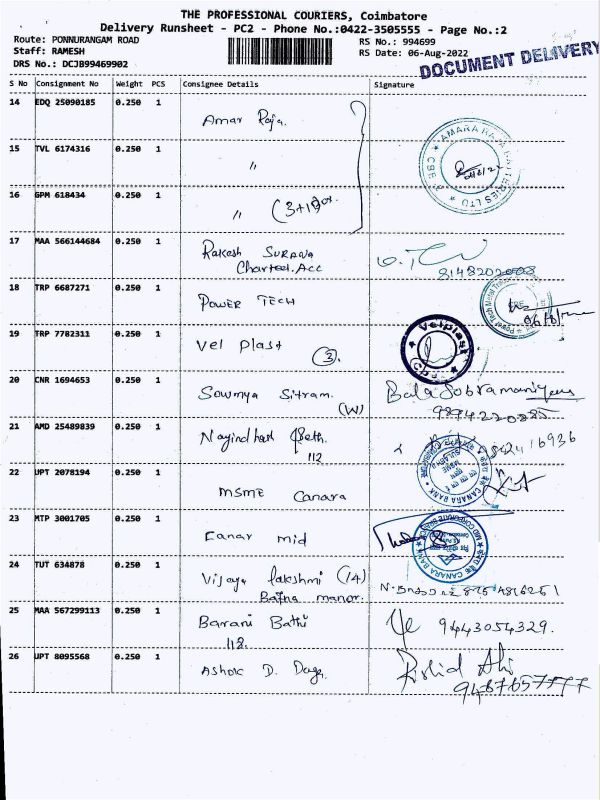 THE PROFESSIONAL COURIERS, Coimbatore
Delivery Runsheet - PC2 - Phone No.:0422-3505555 - Page No.:2
Route: PONNURANGAM ROAD
RS No.: 994699
Staff: RAMESH
RS Date: 06-Aug-2022
DRS No.: DCJB99469902
DOCUMENT DELIVERY
S No Consignment No Weight PCS Consignee Details Signature
14 EDQ 25090185 0.250 1 Amar Raja
15 TVL 6174316 0.250 1 "
AMARA RAJA BATTERIES LTD ★ CBE
16 GPM 618434 0.250 1 "
17 MAA 566144684 0.250 1 Rakesh SURANA
Charted. Acc
8148202008
18 TRP 6687271 0.250 1 POWER TECH
19 TRP 7782311 0.250 1 Vel Plast (3).
Velplast
20 CNR 1694653 0.250 1 Sowmya Sitram. (W)
9894220885
21 AMD 25489839 0.250 1 112
22 UPT 2078194 0.250 1 MSME Canara
CANARA BANK
23 MTP 3001705 0.250 1 Canar mid
CANARA BANK MID CORPORATE
24 TUT 634878 0.250 1 Vijaya Lakshmi (14)
Bafna manor.
25 MAA 567299113 0.250 1 Barani Bathi
118.
9443054329.
26 UPT 8095568 0.250 1 Ashok D. Daga
Rishid Ali
9487657777